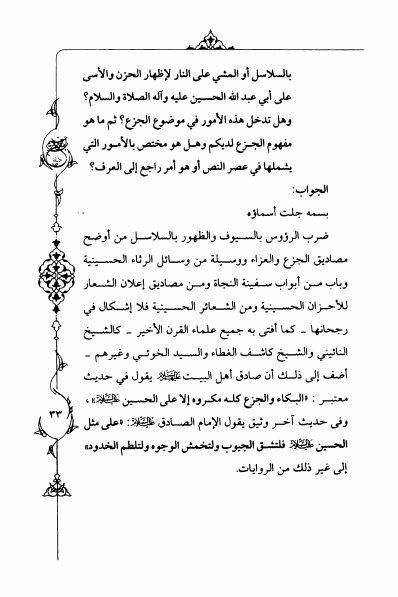 بالسلاسل أو المشي على النار لإظهار الحزن والأسى
على أبي عبد الله الحسين عليه وآله الصلاة والسلام؟
وهل تدخل هذه الأمور في موضوع الجزع؟ ثم ما هو
مفهوم الجزع لديكم وهل هو مختص بالأمور التي
يشملها في عصر النص أو هو أمر راجع إلى العرف؟
الجواب:
بسمه جلت أسماؤه
ضرب الرؤوس بالسيوف والظهور بالسلاسل من أوضح
مصاديق الجزع والعزاء ووسيلة من وسائل الرثاء الحسينية
وباب من أبواب سفينة النجاة ومن مصاديق إعلان الشعار
للأحزان الحسينية ومن الشعائر الحسينية فلا إشكال في
رجحانها ـ كما أفتى به جميع علماء القرن الأخير ـ كالشيخ
النائيني والشيخ كاشف الغطاء والسيد الخوئي وغيرهم ـ
أضف إلى ذلك أن صادق أهل البيت عليهم السلام يقول في حديث
معتبر: «البكاء والجزع كله مكروه إلا على الحسين عليه السلام»،
وفي حديث آخر وثيق يقول الإمام الصادق عليه السلام: «على مثل
الحسين عليه السلام فلتشق الجيوب ولتخمش الوجوه ولتلطم الخدود»
إلى غير ذلك من الروايات.
٣٣